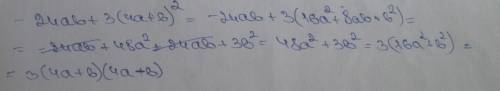 - 24ab + 3(4a+b)² = -24ab + 3(16a²+8ab+b²) =
= -24ab + 48a² + 24ab + 3b² = 48a² + 3b² = 3(16a²+b²) =
= 3(4a+b)(4a+b)